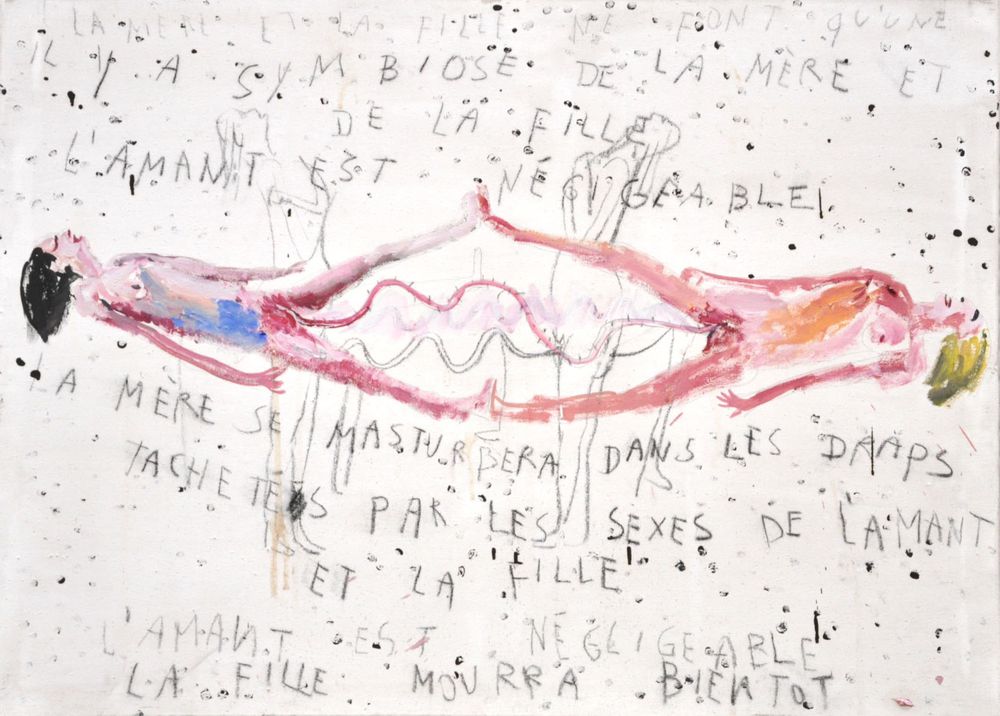 LA MÈRE ET LA FILLE NE FONT QU'UNE
IL Y A SYMBIOSE DE LA MÈRE ET
DE LA FILLE
L'AMANT EST NÉGLIGEABLE
LA MÈRE SE MASTURBERA DANS LES DRAPS
TACHETÉS PAR LES SEXES DE L'AMANT
ET LA FILLE
L'AMANT EST NÉGLIGEABLE
LA FILLE MOURRA BIENTOT